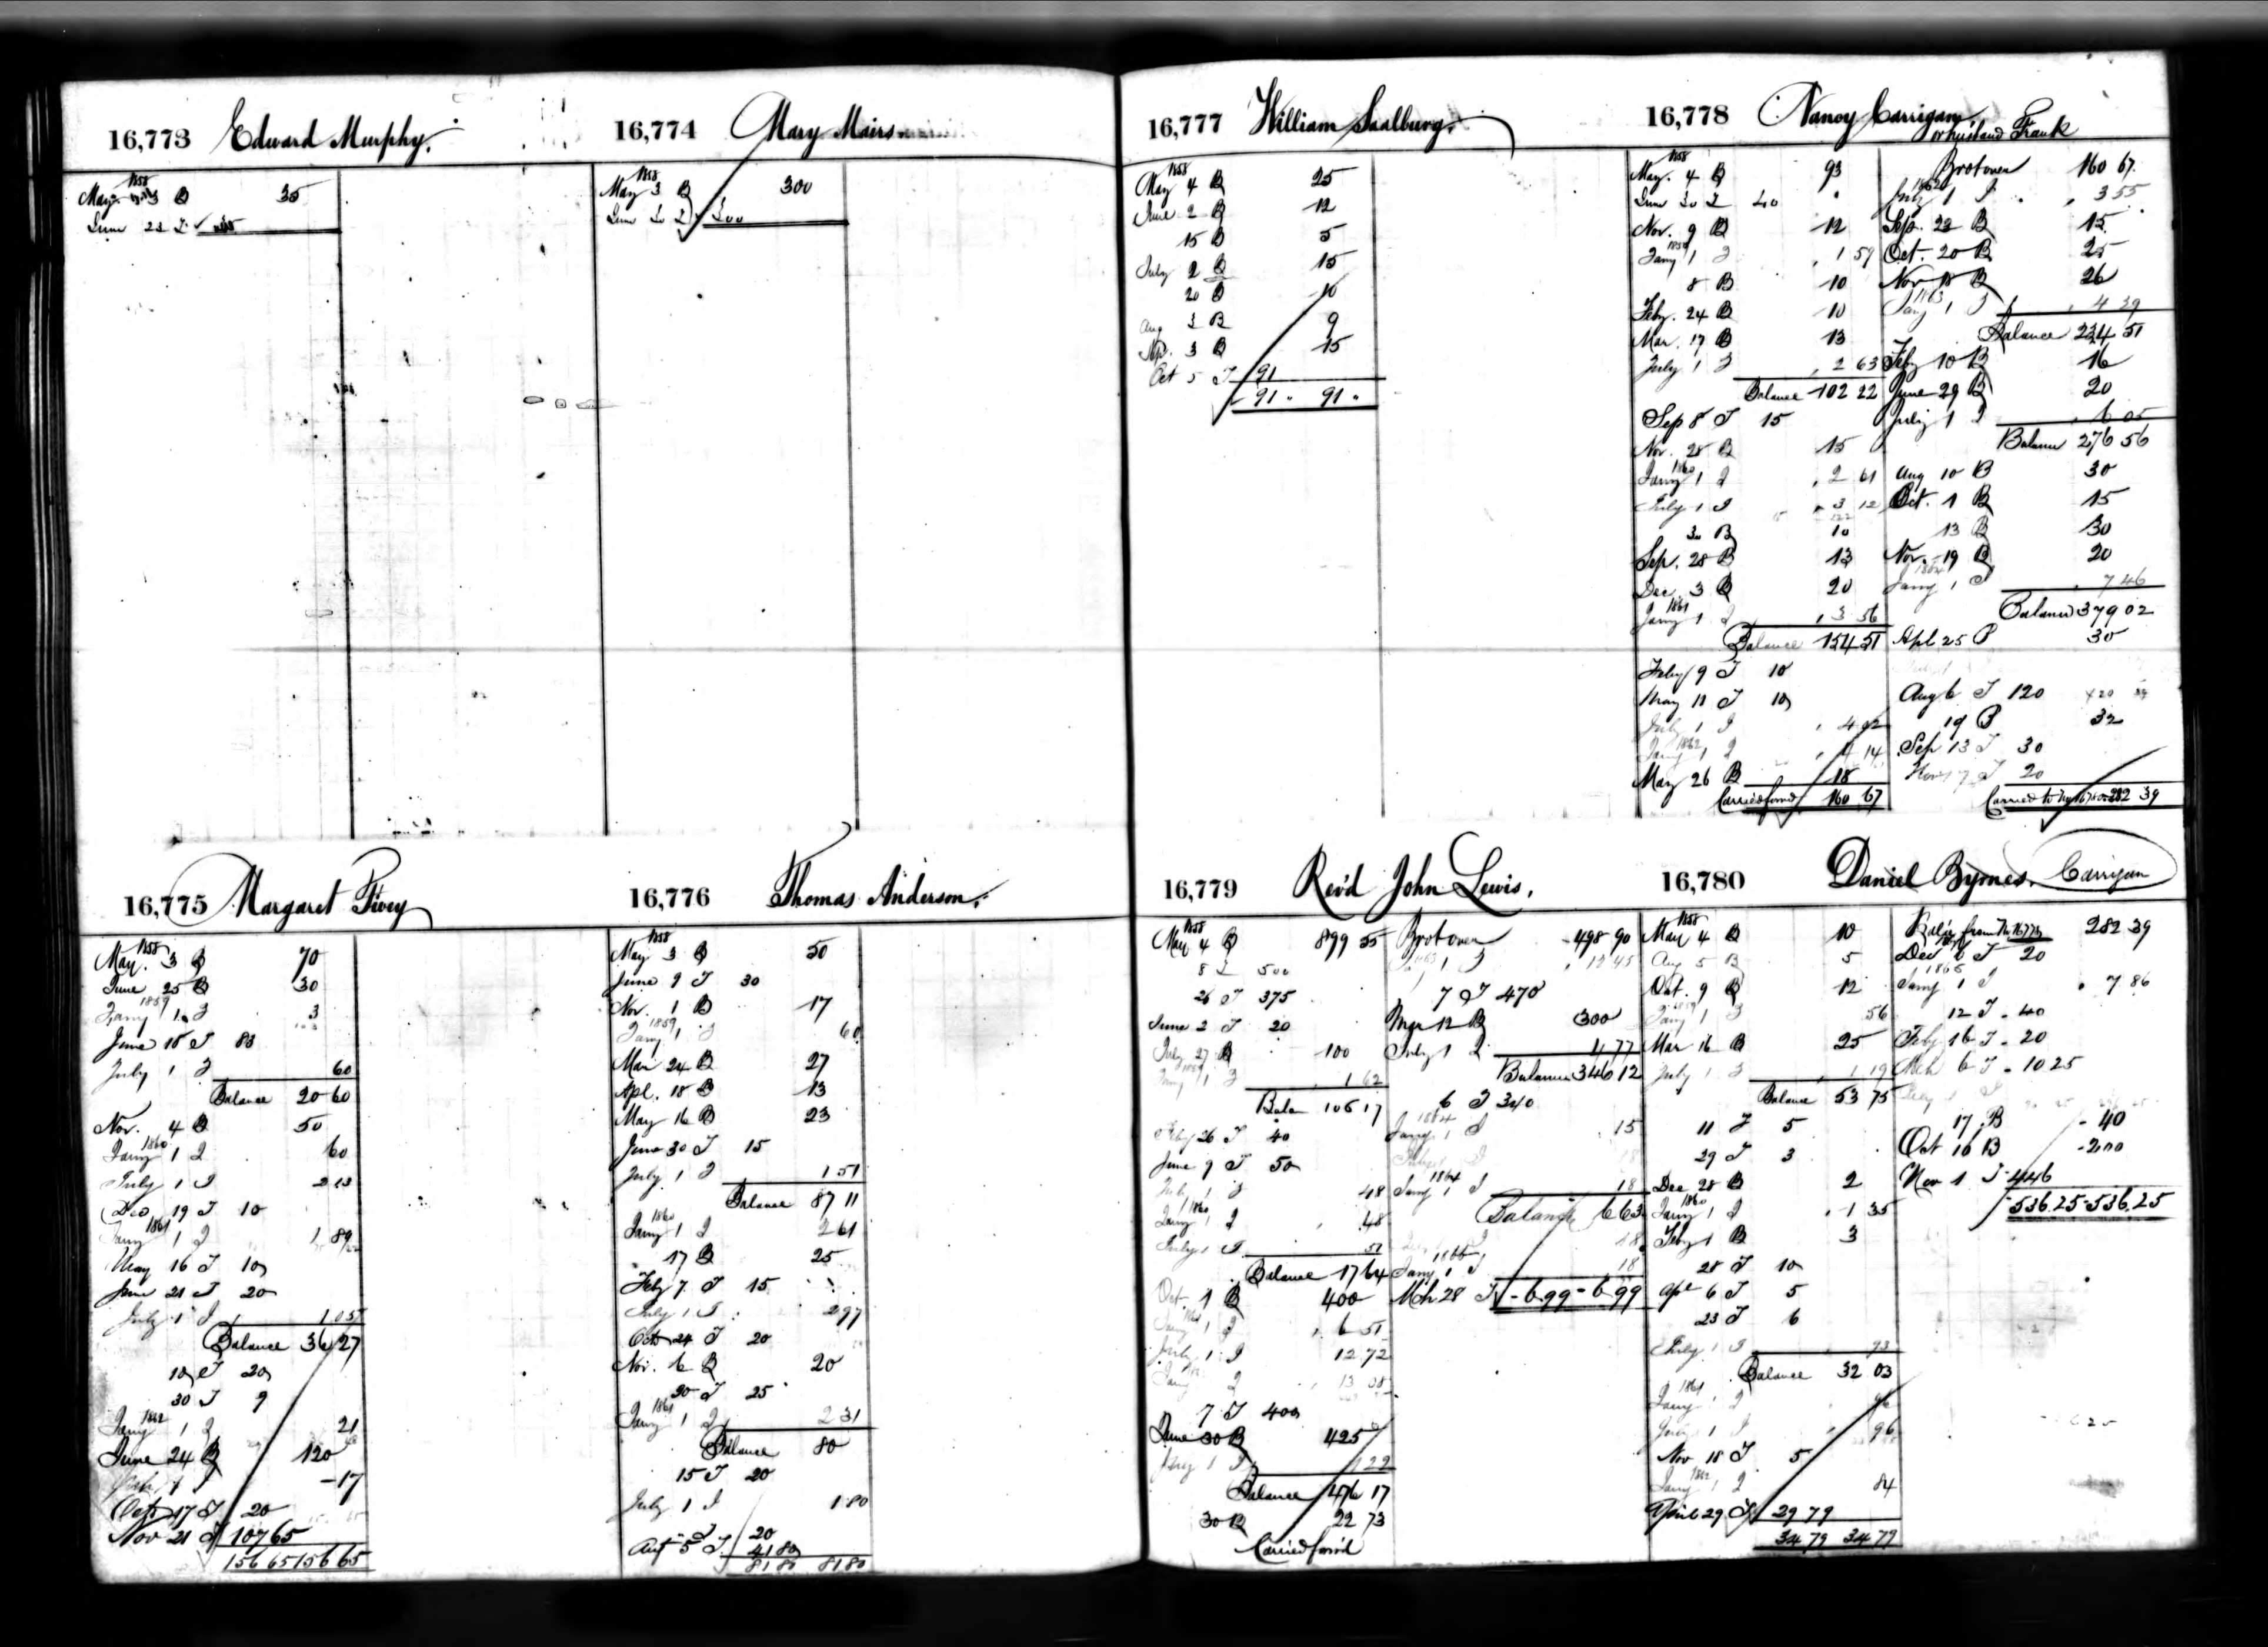 16,773 Edward Murphy.
1858
May 3 B 35
June 23 I 35
16,774 Mary Mairs
1858
May 3 B 300
June 30 I 300
16,775 Margaret Pivey
1858
May 3 B 70
June 25 B 30
1859
Jany 1 I 3
June 18 I 83
July 1 I 60
Balance 20 60
Nov. 4 B 50
1860
Jany 1 I 60
July 1 I 2 13
Dec 19 I 10
1861
Jany 1 I 1 89
May 16 I 10
June 21 I 20
July 1 I 1 05
Balance 36 27
10 I 20
30 I 9
1862
Jany 1 I 21
June 24 B 120
July 1 I 17
Oct 17 I 20
Nov 21 I 107 65
156 65 156 65
16,776 Thomas Anderson.
1858
May 3 B 50
June 9 I 30
Nov. 1 B 17
1859
Jany 1 I 60
Mar 24 B 27
Apl. 18 B 13
May 16 B 23
June 30 I 15
July 1 I 1 51
Balance 87 11
1860
Jany 1 I 2 61
17 B 25
Feby 7 I 15
July 1 I 2 97
Oct 24 I 20
Nov. 6 B 20
20 I 25
1861
Jany 1 I 2 31
Balance 80
15 I 20
July 1 I 1 80
I 20
Aug 5 I 41 80
81 80 81 80
16,777 William Saalburg.
1858
May 4 B 25
June 2 B 12
15 B 5
July 2 B 15
20 B 10
Aug 3 B 9
Sep. 3 B 15
Oct 5 I 91
91 " 91 "
16,778 Nancy Carrigan
or husband Frank
1858
May. 4 B 93
June 30 I 40
Nov. 9 B 12
1859
Jany 1 I 1 59
8 B 10
Feby. 24 B 10
Mar. 17 B 13
July 1 I 2 63
Balance 102 22
Sep 8 I 15
Nov. 28 B 15
1860
Jany 1 I 2 61
July 1 I 3 12
30 B 10
Sep. 28 B 13
Dec. 3 B 20
1861
Jany 1 I 3 56
Balance 154 51
Feby 9 I 10
May 11 I 10
July 1 I 4 02
1862
Jany 1 I 4 14
May 26 B 18
Carried forwd 160 67
Brot over 160 67
1862
July 1 I 3 55
Sep. 23 B 15
Oct. 20 B 25
Nov 18 B 26
1863
Jany 1 I 4 29
Balance 234 51
Feby 10 B 16
June 29 B 20
July 1 I 6 05
Balance 276 56
Aug 10 B 30
Oct. 1 B 15
13 B 30
Nov. 19 B 20
1864
Jany 1 I 7 46
Balance 379 02
Apl 25 B 30
Aug 6 I 120
19 B 32
Sep 13 I 30
Nov 7 I 20
Carried to No 16780 282 39
16,779 Rev'd John Lewis.
1858
May 4 B 899 55
8 I 500
26 I 375
June 2 I 20
July 27 B 100
1859
Jany 1 I 1 62
Balan 106 17
Feby 26 I 40
June 9 I 50
July 1 I 48
1860
Jany 1 I 48
July 1 I 51
Balance 17 64
Oct. 1 B 400
1861
Jany 1 I 6 51
July 1 I 12 72
Jany I 13 08
7 I 400
June 30 B 425
July 1 I 1 22
Balance 476 17
30 B 22 73
Carried forwd
Brot over 498 90
1863
Jany 1 I 12 45
7 I 470
Mar 12 B 300
July 1 I 4 77
Balance 346 12
6 I 340
1864
Jany 1 I 15
July 1 I 18
Jany 1 I 18
Balance 6 63
18
1866
Jany 1 I 18
Mch 28 I 6 99 6 99
16,780 Daniel Byrnes. Carrigan
1858
May 4 B 10
Aug 5 B 5
Oct. 9 B 12
1859
Jany 1 I 56
Mar 16 B 25
July 1 I 1 19
Balance 53 75
11 I 5
29 I 3
Dec 28 B 2
1860
Jany 1 I 1 35
Feby 1 B 3
28 I 10
Apl 6 I 5
23 I 6
July 1 I 93
Balance 32 03
1861
Jany 1 I 96
July 1 I 96
Nov 18 I 5
1862
Jany 1 I 84
April 29 I 29 79
34 79 34 79
Bal'ce from No 16778 282 39
Dec 6 I 20
1865
Jany 1 I 7 86
12 I 40
Feby 16 I 20
Mch 6 I 10 25
17 B 40
Oct 10 B 200
Nov 1 I 446
536.25 536.25